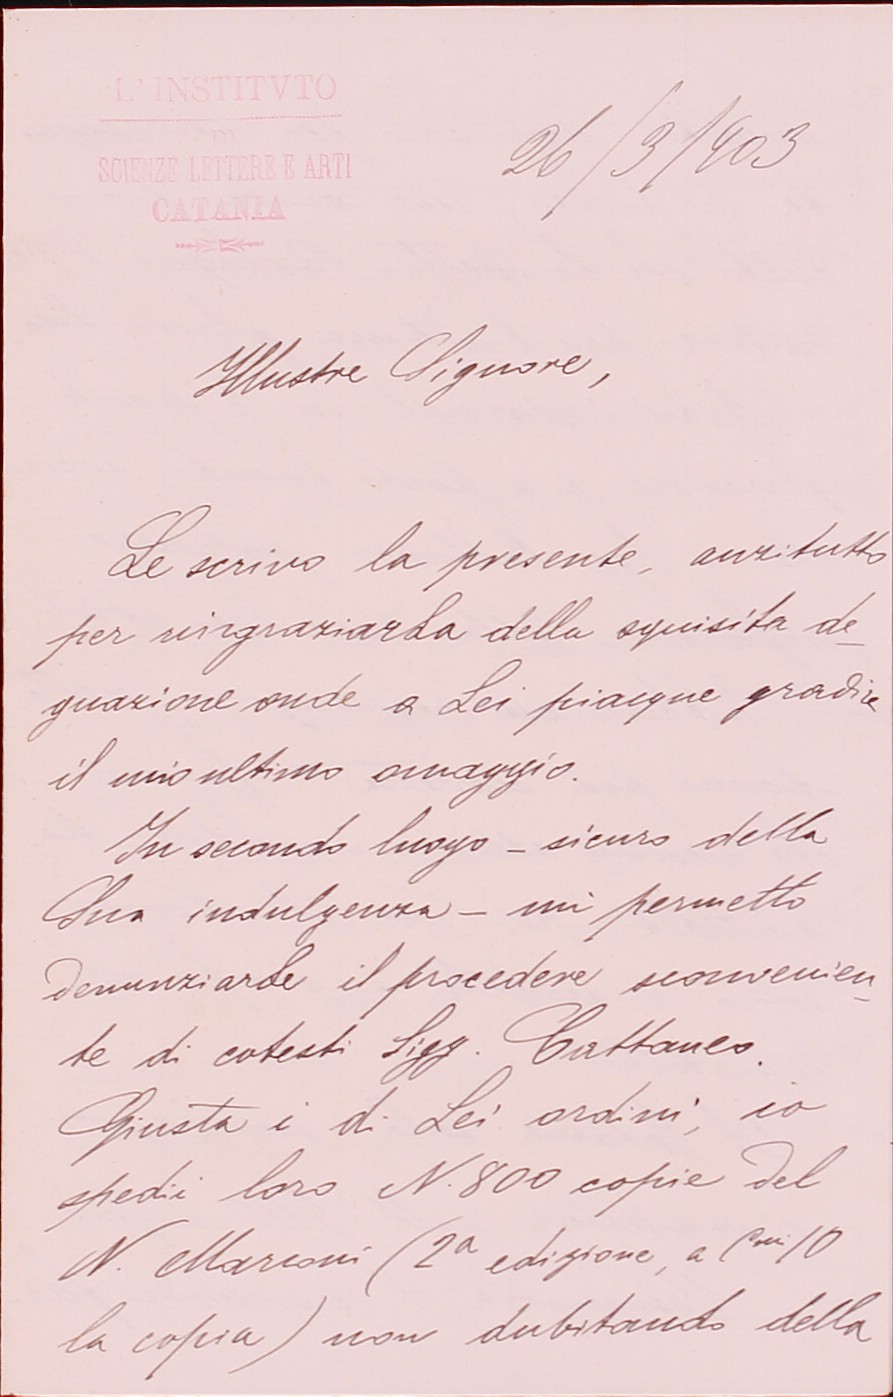 L'INSTITVTO
DI
SCIENZE LETTERE E ARTI
CATANIA
26/3/903
Illustre Signore,
Le scrivo la presente, anzitutto
per ringraziarLa della squisita de-
gnazione onde a Lei piacque gradire
il mio ultimo omaggio.
In secondo luogo – sicuro della
Sua indulgenza – mi permetto
denunziarLe il procedere sconvenien-
te di cotesti Sigg. Cattaneo.
Giusta i di Lei ordini, io
spedii loro N. 800 copie del
N. Marconi (2ª edizione, a Cmi 10
la copia) non dubitando della